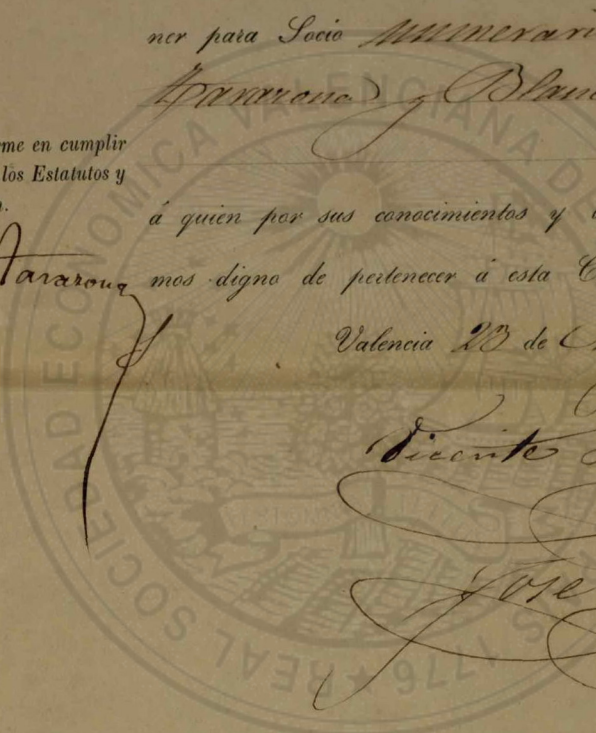 ner para Socio numerari
Tararona y Blan
me en cumplir
los Estatutos y
á quien por sus conocimientos y
Tararona
mos digno de pertenecer á esta C
Valencia 23 de
Vicente
José
REAL SOCIEDAD ECONOMICA VALENCIANA DE
1776